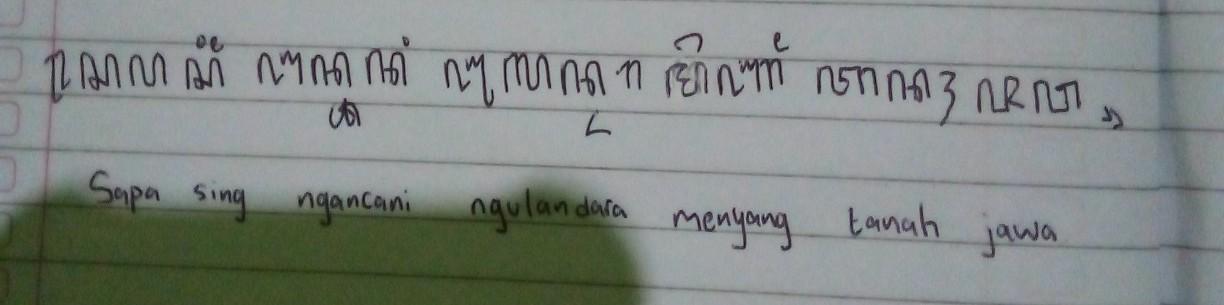 ꧋ꦱꦥ ꦱꦶꦁ ꦔꦤ꧀ꦕꦤꦶ ꦔꦸꦭꦤ꧀ꦢꦫ ꦩꦼꦚꦁ ꦠꦤꦃ ꦗꦮ꧉
Sapa sing ngancani ngulandara menyang tanah jawa